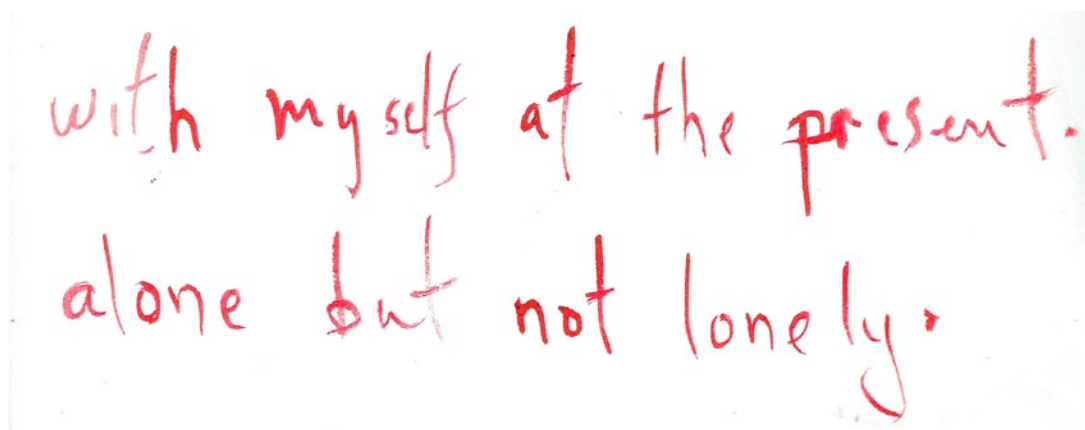 with myself at the present.
alone but not lonely.